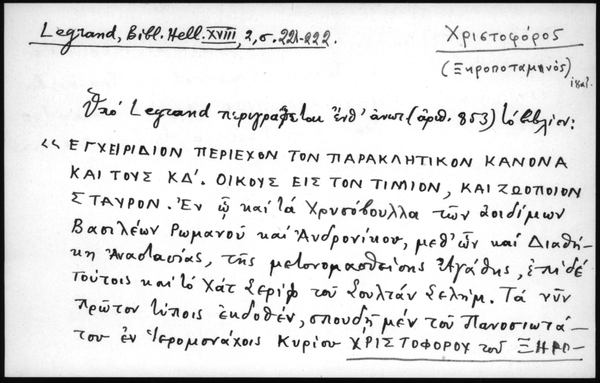 Legrand, Bibl. Hell. XVIII, 2, σ. 221-222.
Χριστοφόρος
(Ξηροποταμηνός)
Ὑπό Legrand περιγράφεται ἐνθ' ἀνωτ (ἀριθ. 853) τό βιβλίον:
«ΕΓΧΕΙΡΙΔΙΟΝ ΠΕΡΙΕΧΟΝ ΤΟΝ ΠΑΡΑΚΛΗΤΙΚΟΝ ΚΑΝΟΝΑ
ΚΑΙ ΤΟΥΣ ΚΔ'. ΟΙΚΟΥΣ ΕΙΣ ΤΟΝ ΤΙΜΙΟΝ, ΚΑΙ ΖΩΟΠΟΙΟΝ
ΣΤΑΥΡΟΝ. Ἐν ᾧ καί τά Χρυσόβουλλα τῶν ἀοιδίμων
Βασιλέων Ρωμανοῦ καί Ἀνδρονίκου, μεθ' ὧν καί Διαθή-
κη Ἀναστασίας, τῆς μετονομασθείσης Ἀγάθης, ἐπί δέ
τούτοις καί τό Χάτ Σερίφ τοῦ Σουλτάν Σελήμ. Τά νῦν
πρῶτον τύποις ἐκδοθέν, σπουδῇ μέν τοῦ Πανοσιωτά-
του ἐν Ἱερομονάχοις Κυρίου ΧΡΙΣΤΟΦΟΡΟΥ τοῦ ΞΗΡΟ-